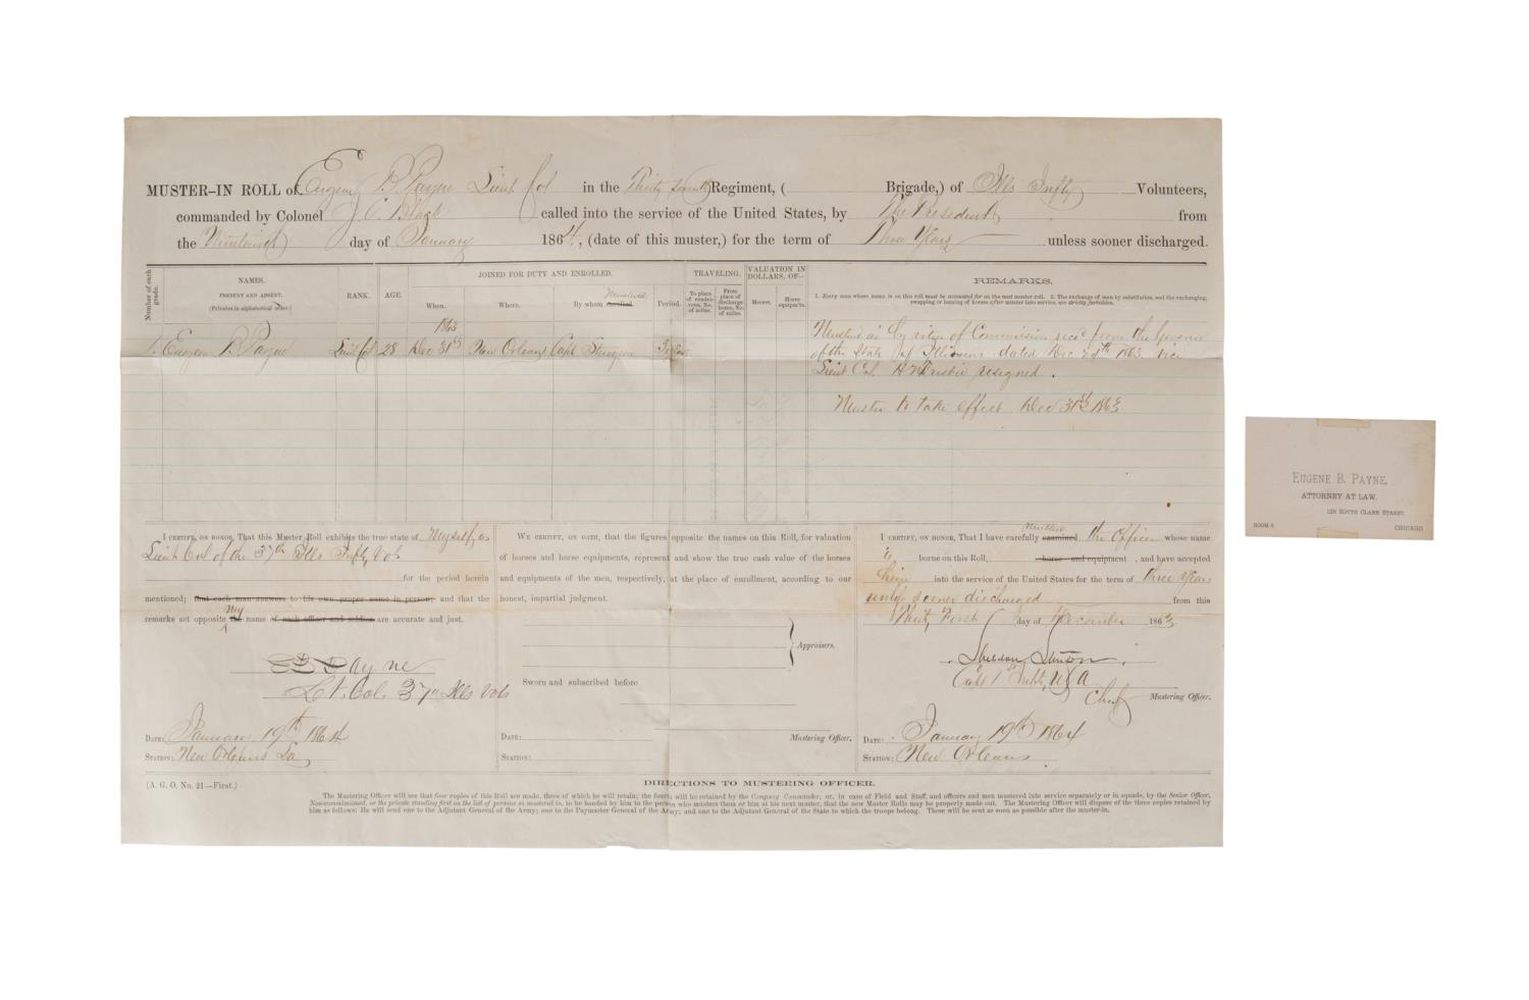 MUSTER-IN ROLL of Eugene B. Payne Lieut Col in the Thirty Seventh Regiment, ( Brigade,) of Ills Infty Volunteers,
commanded by Colonel J. C. Black called into the service of the United States, by The President from
the Nineteenth day of January 1864, (date of this muster,) for the term of Three Years unless sooner discharged.
Number of each grade.
NAMES.
PRESENT AND ABSENT.
(Privates in alphabetical order.)
RANK.
AGE.
JOINED FOR DUTY AND ENROLLED.
When.
Where.
By whom enrolled.
Mustered
Period.
TRAVELING.
To place of rendezvous, No. of miles.
From place of discharge home, No. of miles.
VALUATION IN DOLLARS, OF—
Horses.
Horse equipments.
REMARKS.
1. Every man whose name is on this roll must be accounted for on the next muster roll. 2. The exchange of men by substitution, and the exchanging, swapping or loaning of horses after muster into service, are strictly forbidden.
1863
1. Eugene B. Payne Lieut Col 28 Dec 31st New Orleans Capt Sturgeon
Mustered in by virtue of Commission recd from the Governor
of the State of Illinois dated Dec 24th 1863 vice
Lieut Col. resigned.
Muster to take effect Dec 31st 1863
I CERTIFY, ON HONOR, That this Muster Roll exhibits the true state of Myself, as
Lieut Col of the 37th Ills Infty Vols
for the period herein
mentioned; that each man answers to his own proper name in person; and that the
remarks set opposite the my name of each officer and soldier are accurate and just.
E B Payne
Lt. Col. 37th Ills Vols
DATE: January 19th 1864
STATION: New Orleans La
WE CERTIFY, ON OATH, that the figures opposite the names on this Roll, for valuation
of horses and horse equipments, represent and show the true cash value of the horses
and equipments of the men, respectively, at the place of enrollment, according to our
honest, impartial judgment.
Appraisers.
Sworn and subscribed before
Mustering Officer.
DATE:
STATION:
Mustered
I CERTIFY, ON HONOR, That I have carefully examined the Officer whose name
is borne on this Roll, horse and equipment, and have accepted
him into the service of the United States for the term of three Years
unless sooner discharged from this
Thirty First day of December 1863
Sheldon Sturgeon
Capt 1st Infty, USA
Chief Mustering Officer.
DATE: January 19th 1864
STATION: New Orleans
(A. G. O. No. 21—First.)
DIRECTIONS TO MUSTERING OFFICER.
The Mustering Officer will see that four copies of this Roll are made, three of which he will retain; the fourth will be retained by the Company Commander, or, in case of Field and Staff, and officers and men mustered into service separately or in squads, by the Senior Officer,
Noncommissioned, or the private standing first on the list of persons so mustered in, to be handed by him to the person who musters them or him at his next muster, that the new Muster Rolls may be properly made out. The Mustering Officer will dispose of the three copies retained by
him as follows: He will send one to the Adjutant General of the Army; one to the Paymaster General of the Army; and one to the Adjutant General of the State to which the troops belong. These will be sent as soon as possible after the muster-in.
EUGENE B. PAYNE,
ATTORNEY AT LAW.
SOUTH CLARK STREET
ROOM
CHICAGO